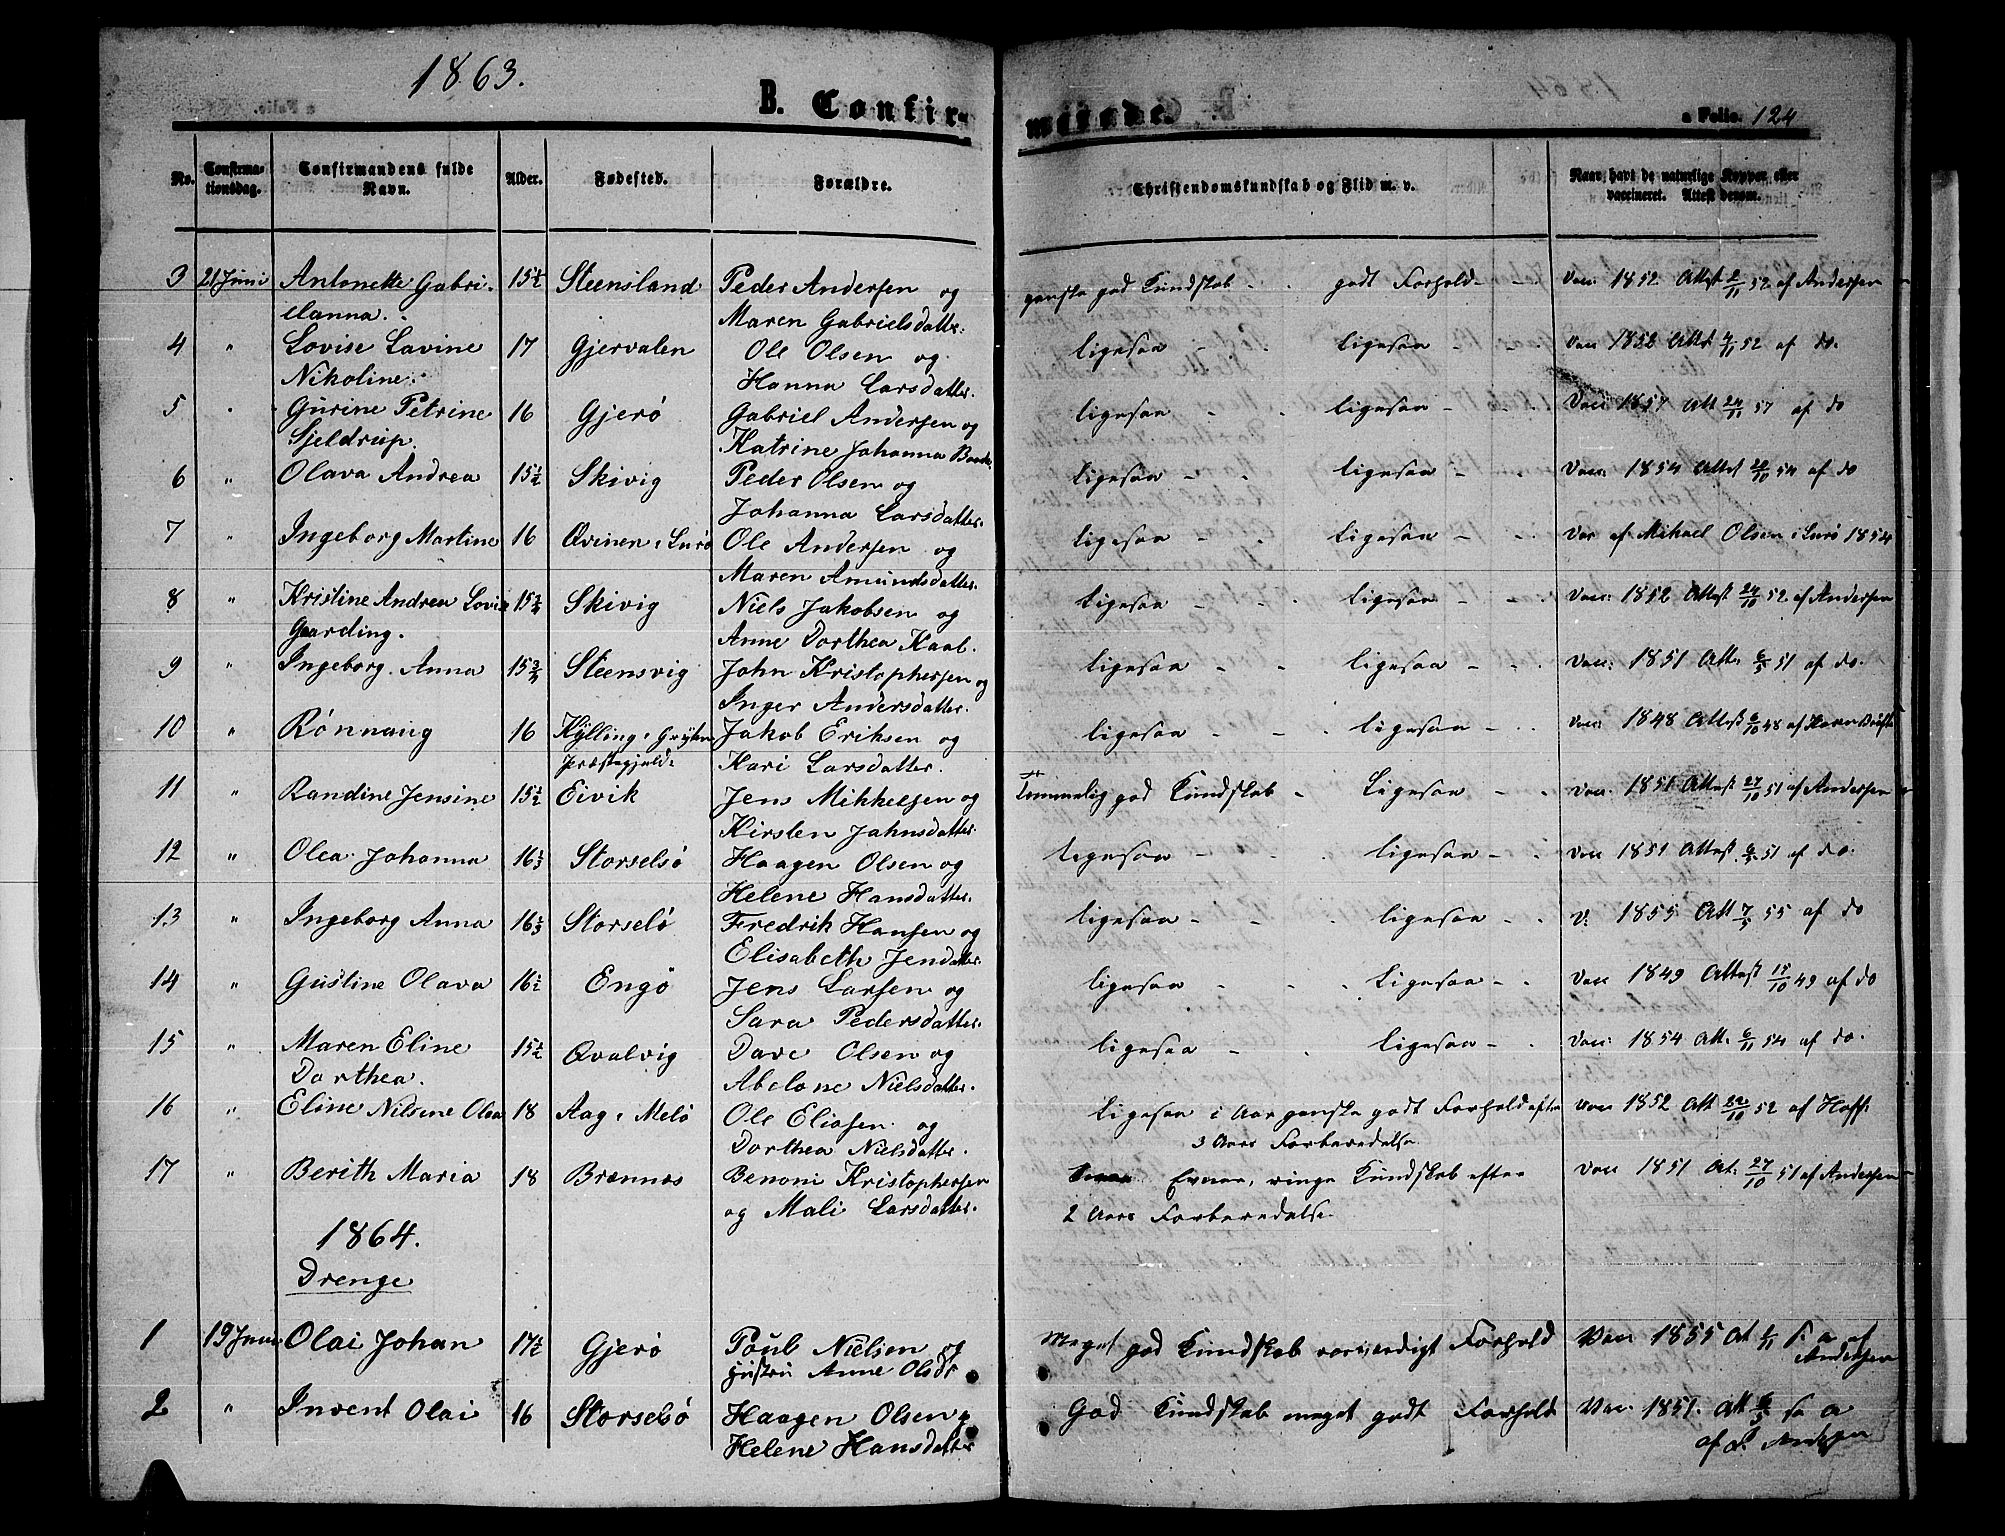 1863.
B. Confirmerede. a Folio. 124
No. Confirmationsdag. Confirmandens fulde Navn. Alder. Fødested. Forældre. Christendomskundskab og Flid m. v. Naar, havt de naturlige Kopper eller vaccineret. Attest derom.
3 21 Juni Antonette Gabri- 15½ Steensland Peder Andersen og ganske god Kundskab - godt Forhold - - Vac: 1852 Attest 2/11 52 af Andersen
elanna. Maren Gabrielsdatter.
4 " Lovise Lavine 17 Gjervalen Ole Olsen og ligesaa - ligesaa - - Vac 1852 Att: 4/11 52 af do.
Nikoline. Hanna Larsdatter.
5 " Gurine Petrine 16 Gjerö Gabriel Andersen og ligesaa - ligesaa - Vac: 1857 Att 24/11 57 af do
Sjeldrup. Katrine Johanna
6 " Olava Andrea 15½ Skivig Peder Olsen og ligesaa - - ligesaa - - Vac: 1854 Attest 20/10 54 af do
Johanna Larsdatter.
7 " Ingeborg Martine 16 Qvinen i Lurö Ole Andersen og ligesaa - ligesaa - Vac af Mikael Olsen i Lurö 1854
Maren Amundsdatter.
8 " Kristine Andrea Lovise 15¾ Skivig Niels Jakobsen og ligesaa - ligesaa - - Vac: 1852 Attest 24/10 52 af Andersen
Gaarding. Anne Dorthea Kaal.
9 " Ingeborg Anna 15¾ Steensvig John Kristophersen og ligesaa - - ligesaa - Vac: 1851 Att. 6/5 51 af do.
Inger Andersdatter.
10 " Rönnaug 16 Kylling i Grytten Jakob Eriksen og ligesaa - - ligesaa - Vac: 1848 Attest 6/10 48 af
Præstegjeld: Kari Larsdatter.
11 " Randine Jensine 15½ Eivik Jens Mikkelsen og temmelig god Kundskab - Ligesaa - - Vac: 1851 Attest 27/10 51 af Andersen
Kirsten Jahnsdatter.
12 " Olea Johanna 16⅓ Storselsö Haagen Olsen og ligesaa - ligesaa - Vac 1851 Attest 6/5 51 af do.
Helene Hansdatter.
13 " Ingeborg Anna 16⅓ Storselö Fredrik Hansen og ligesaa - - ligesaa - V: 1855 Att 7/5 55 af do
Elisabeth Jensdatter.
14 " Gustine Olava 16½ Engö Jens Larsen og ligesaa - - Ligesaa - Vac 1849 Attest 15/10 49 af do
Sara Pedersdatter.
15 " Maren Eline 15½ Qvalvig Dave Olsen og ligesaa - ligesaa - Vac: 1854 Att. 6/11 54 af do.
Dorthea. Abelone Nielsdatter.
16 " Eline Nilsine Olea 18 Aag i Melö Ole Eliasen og ligesaa i Aar ganske godt Forhold efter Vac 1852 Att 22/10 52 af Hoff:
Dorthea Nielsdatter. 3 Aars Forberedelse.
17 " Berith Maria 18 Brænnæs Benoni Kristophersen Evner, ringe Kundskab efter Vac 1851 At. 27/10 51 af Andersen
og Mali Larsdatter. 2 Aars Forberedelse.
1864.
Drenge
1 19 Juni Olai Johan 17½ Gjerö Poul Nielsen og Meget god Kundskab roesværdigt Forhold Vac 1855 At 2/11 s. a af
Hustru Anne Olsdr Andersen
2 " Invent Olai 16 Storselsö Haagen Olsen & God Kundskab meget godt Forhold Vac. 1851. Att 6/5 s. a
Helene Hansdatter af Andersen